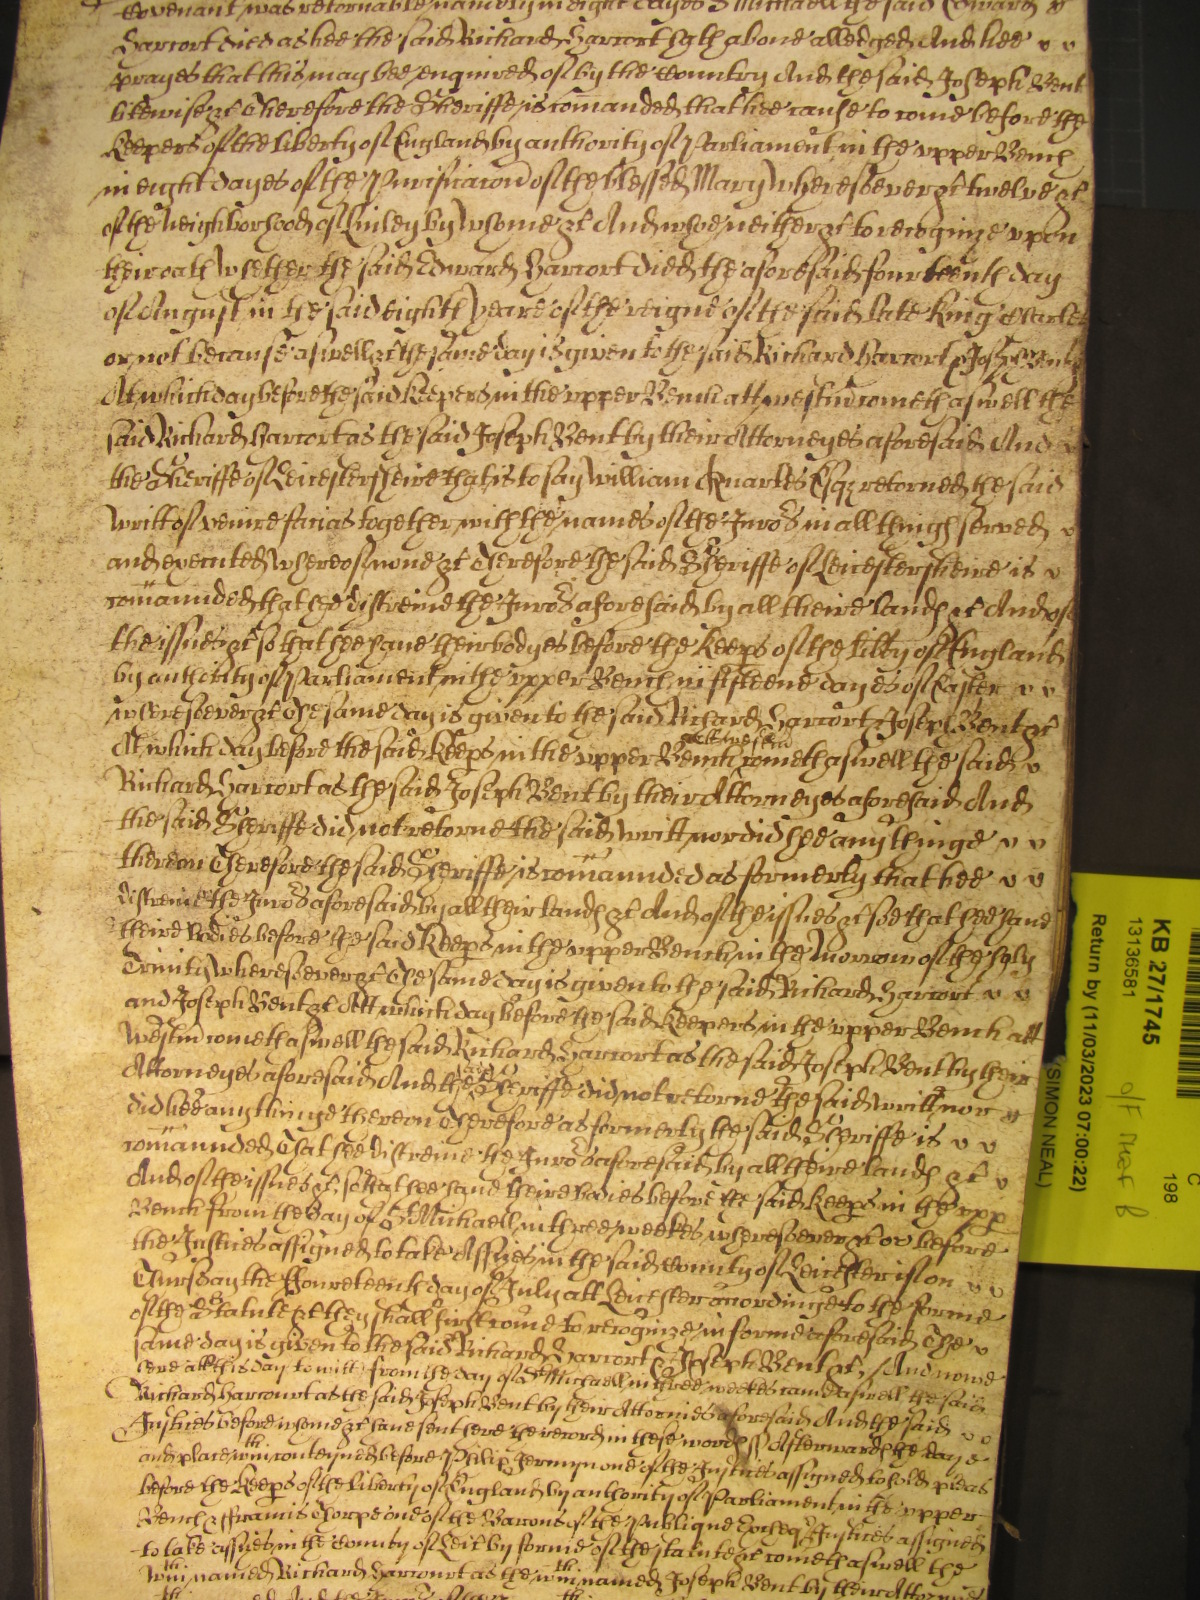 Covenant was retornable namely in eight dayes S Michaell the said Edward
Harcort died as hee the said Richard Harcort hath above alledged And hee
prayes that this may bee enquired of by the Country And the said Joseph Bent
likewise &c Therefore the Sheriffe is comanded that hee cause to come before the
Keepers of the liberty of England by authority of Parliament in the upper Bench
in eight dayes of the Purificacon of the blessed Mary wheresoever &c twelve &c
of the Neighborhood of by whome &c And whoe neither &c to recognize upon
their oath whether the said Edward Harcort died the aforesaid fourteenth day
of August in the said eighth yeare of the reigne of the said late King Charles
or not because aswell &c the same day is given to the said Richard Harcort & Joseph Bent
At which day before the said Keepers in the upper Bench att westm cometh aswell the
said Richard Harcort as the said Joseph Bent by their Attorneyes aforesaid And
the Sheriffe of Leicestersheire that is to say William Quarles Esqr retorned the said
writt of venire facias together with the names of the Juro:s in all things served
and executed whereof none &c Therefore the said Sheriffe of Leicestersheire is
comannded that hee distreine the Juro:s aforesaid by all theire lands &c And of
the issues &c so that hee have their bodyes before the Keeps of the libty of England
by authority of Parliament in the upper Bench in fifteene dayes of Easter
wheresoever &c The same day is given to the said Richard Harcort & Joseph Bent &c
att westm
At which day before the said Keeps in the upper Bench cometh aswell the said
Richard Harcort as the said Joseph Bent by their Attorneyes aforesaid And
the said Sheriffe did not retorne the said writt nor did hee any thinge
thereon Therefore the said Sheriffe is comannded as formerly that hee
distreine the Juro:s aforesaid by all their lands &c And of the issues &c soe that hee have
theire bodies before the said Keeps in the upper Bench in the Morrow of the holy
Trinity wheresoever &c The same day is given to the said Richard Harcort
and Joseph Bent &c Att which day before the said Keepers in the upper Bench att
westm cometh aswell the said Richard Harcort as the said Joseph Bent by their
Attorneyes aforesaid And the said Sheriffe did not retorne the said writt nor
did hee any thinge thereon Therefore as formerly the said Sheriffe is
comannded That hee distreine the Juro:s aforesaid by all theire lands &c
And of the issues &c so that hee have theire bodies before the said Keeps in the upp
Bench from the day of St Michaell in three weekes wheresoever &c or before
the Justices assigned to take Assizes in the said County of Leicester if on
Thursday the ffoureteenth day of July att Leicester accordinge to the forme
of the Statute &c they shall first come to recognize in forme aforesaid The
same day is given to the said Richard Harcort & Joseph Bent &c And nowe
here att this day to witt from the day of St Michaell in three weekes came aswell the said
Richard Harcourt as the said Joseph Bent by their Attornies aforesaid And the said
Justices before whome &c have sent here the record in these words ss Afterwards the day
and place wthin conteyned before Philip Jermyn one of the Justices assigned to hold pleas
before the Keeps of the liberty of England by authority of Parliament in the upper
Bench & ffrancis Thorpe one of the Barons of the publique Excheqr Justices assigned
to take assizes in the County of Leic by forme of the statute &c cometh aswell the
wthin named Richard Harcourt as the wthin named Joseph Bent by their Attornies
KB 27/1745
13136581
Return by (11/03/2023 07:00:22)
(SIMON NEAL)
C
198